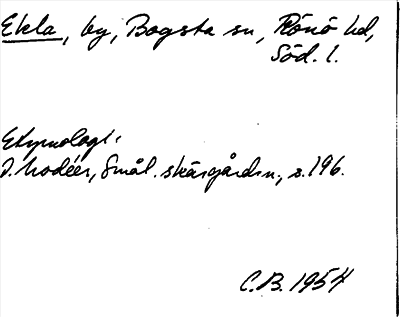 Ekla, by, Bogsta sn, Rönö hd,
Söd. l.
Etymologi:
I. Modéer, Smål. skärgårdsn., s. 196.
C.B. 1954